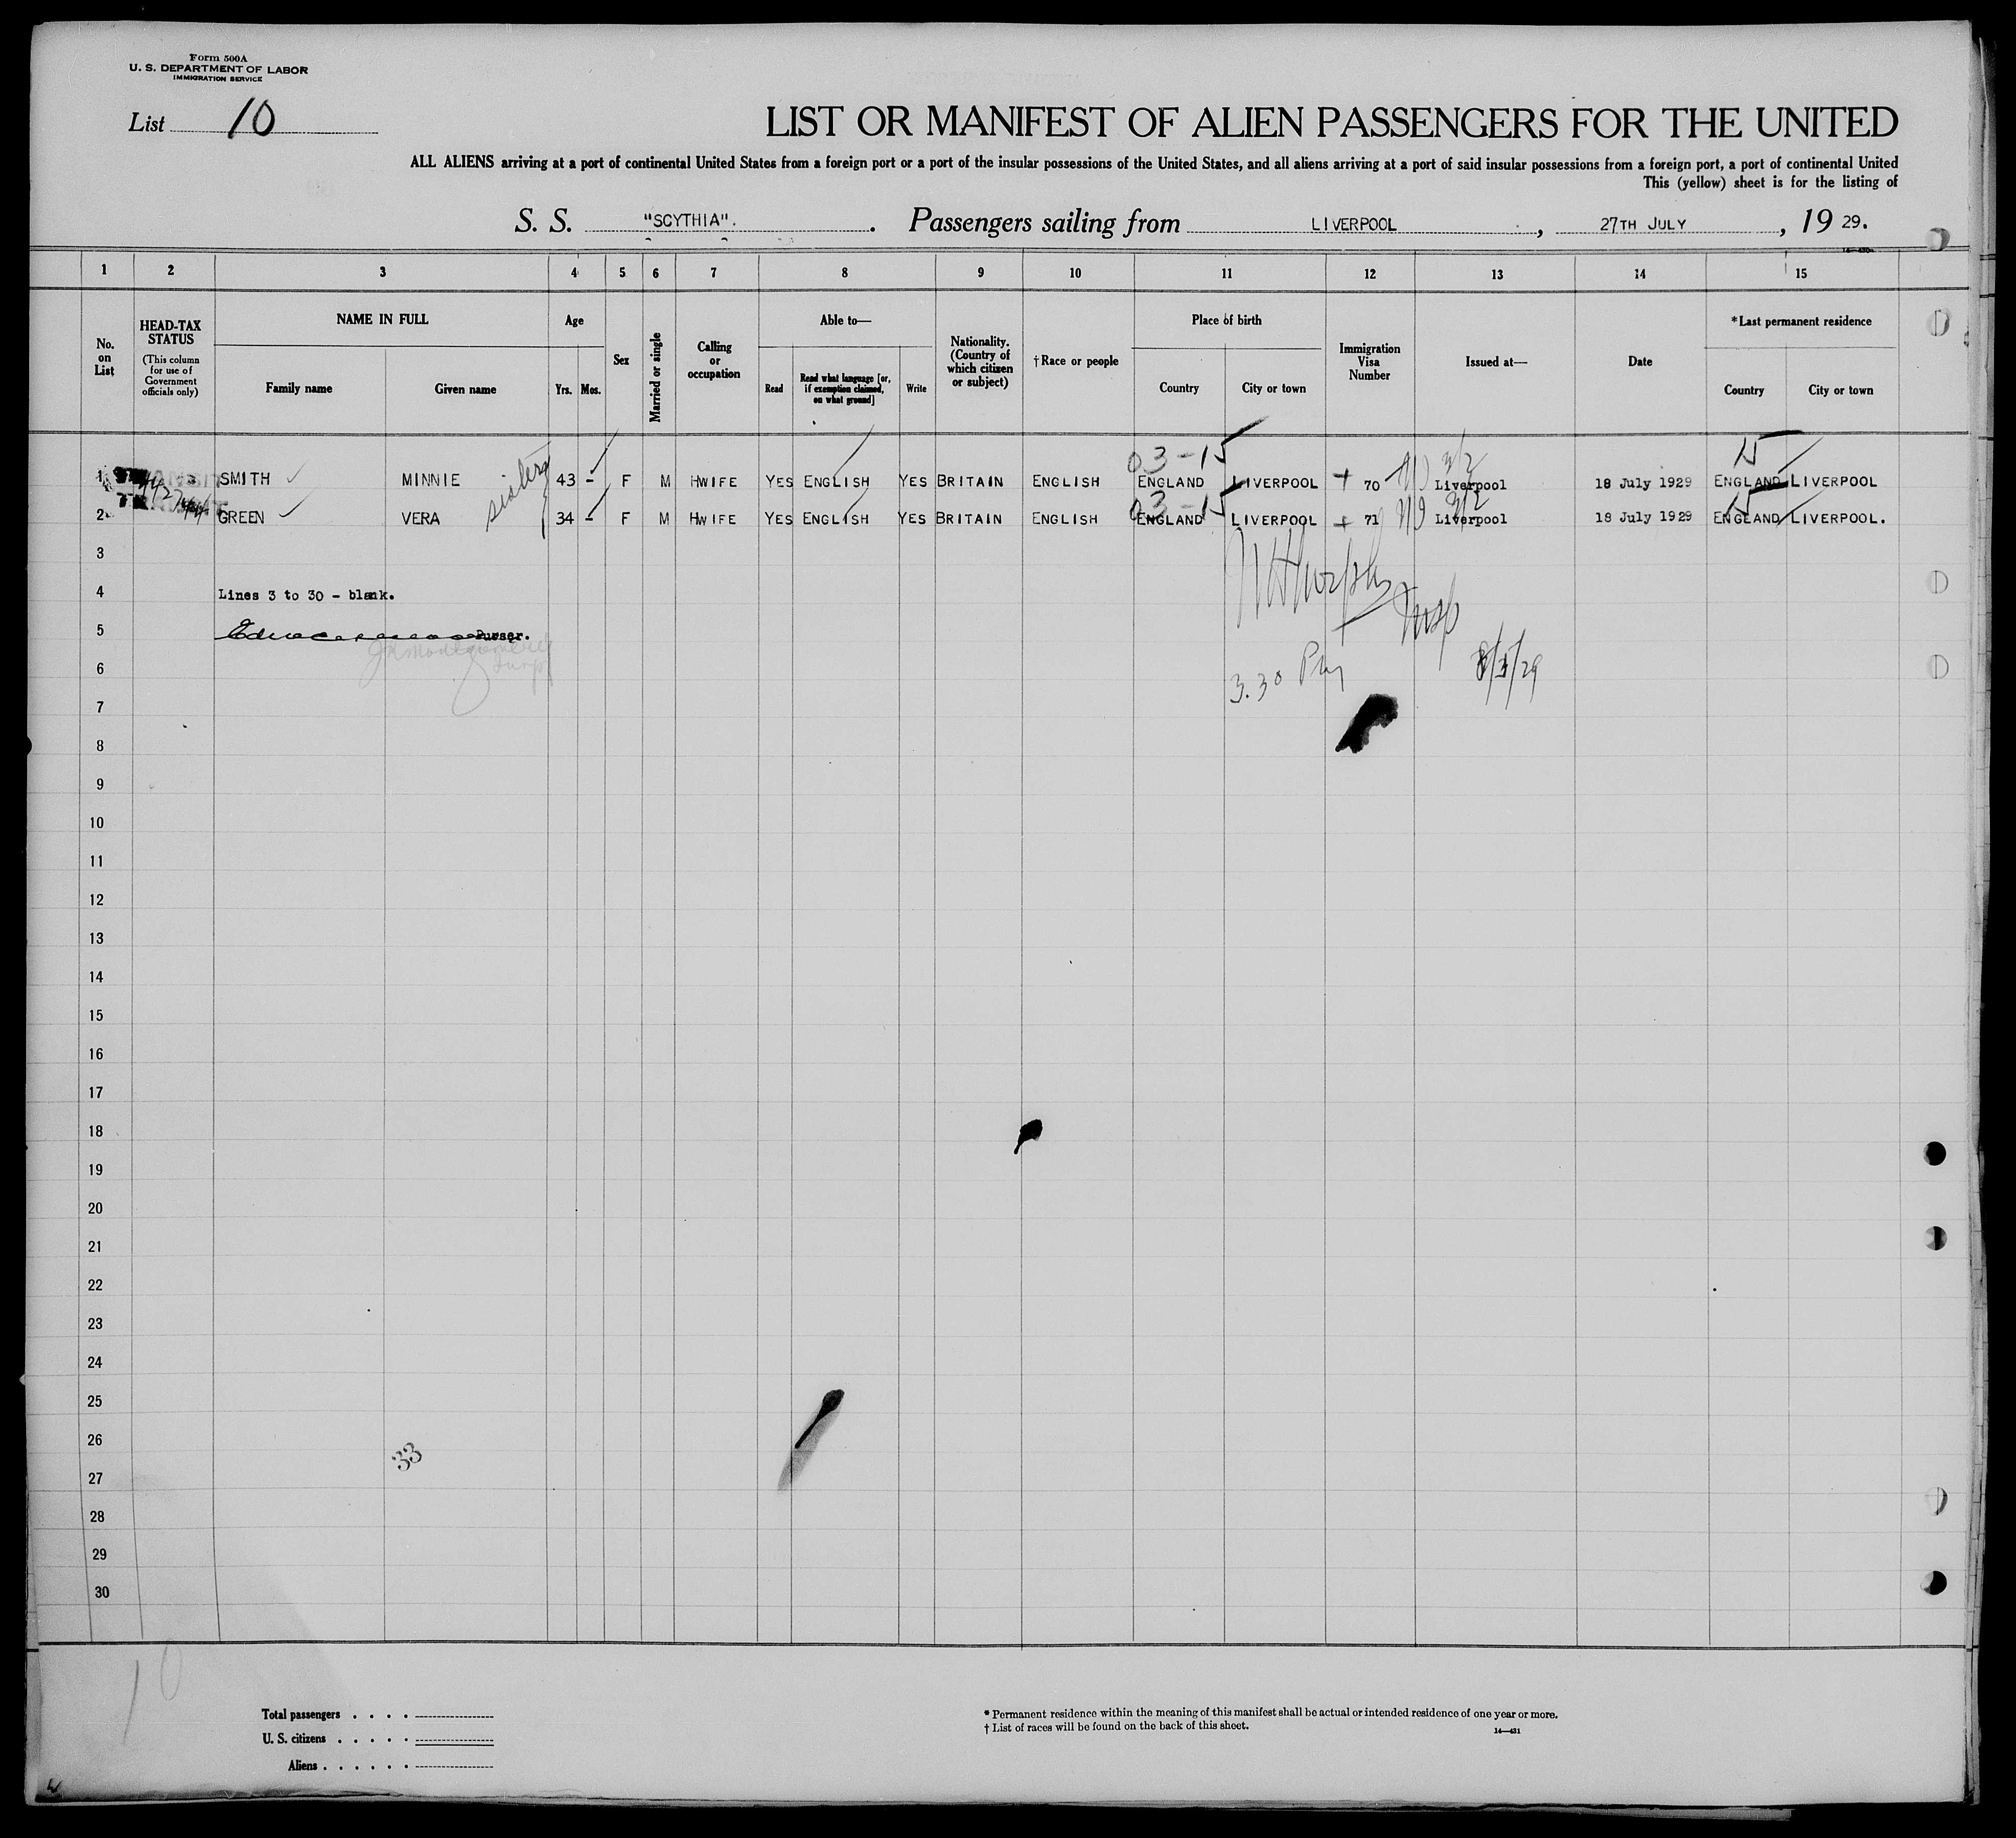 Form 500A
U. S. DEPARTMENT OF LABOR
IMMIGRATION SERVICE
List 10
LIST OR MANIFEST OF ALIEN PASSENGERS FOR THE UNITED
ALL ALIENS arriving at a port of continental United States from a foreign port or a port of the insular possessions of the United States, and all aliens arriving at a port of said insular possessions from a foreign port, a port of continental United
This (yellow) sheet is for the listing of
S. S. "SCYTHIA". Passengers sailing from LIVERPOOL, 27TH JULY, 19 29.
14—430a
1 2 3 4 5 6 7 8 9 10 11 12 13 14 15
No. on List
HEAD-TAX STATUS (This column for use of Government officials only)
NAME IN FULL
Family name Given name
Age
Yrs. Mos.
Sex
Married or single
Calling or occupation
Able to—
Read Read what language [or, if exemption claimed, on what ground] Write
Nationality. (Country of which citizen or subject)
†Race or people
Place of birth
Country City or town
Immigration Visa Number
Issued at—
Date
*Last permanent residence
Country City or town
03-15 15
1 SMITH MINNIE sisters 43 - F M HWIFE YES ENGLISH YES BRITAIN ENGLISH ENGLAND LIVERPOOL 70 Liverpool 18 July 1929 ENGLAND LIVERPOOL
03-15 15
2 GREEN VERA 34 - F M HWIFE YES ENGLISH YES BRITAIN ENGLISH ENGLAND LIVERPOOL 71 Liverpool 18 July 1929 ENGLAND LIVERPOOL.
3
4 Lines 3 to 30 - blank.
5 Purser.
Insp
6
3.30 PM 8/5/29
7
8
9
10
11
12
13
14
15
16
17
18
19
20
21
22
23
24
25
26
33
27
28
29
30
10
Total passengers . . . .
U. S. citizens . . . . .
Aliens . . . . . .
* Permanent residence within the meaning of this manifest shall be actual or intended residence of one year or more.
† List of races will be found on the back of this sheet.
14—431